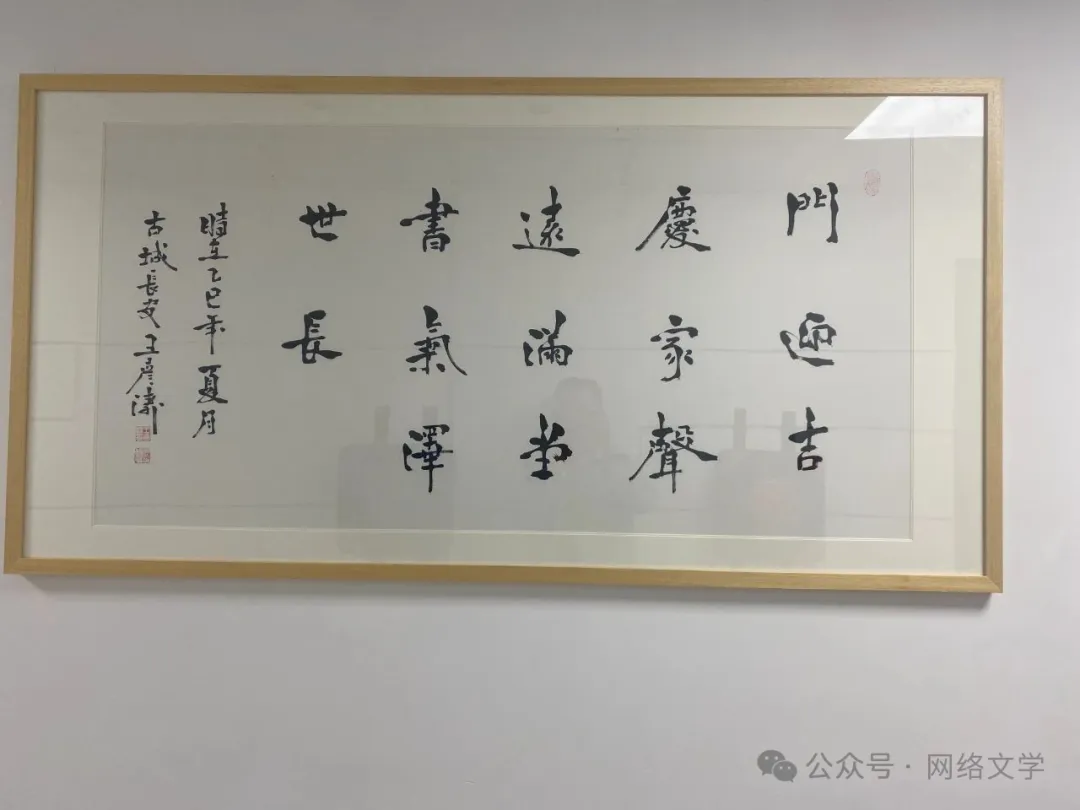 門迎吉
慶家聲
遠滿堂
書氣澤
世長
時在乙巳年夏月
古城長安王彦濤
公众号·网络文学